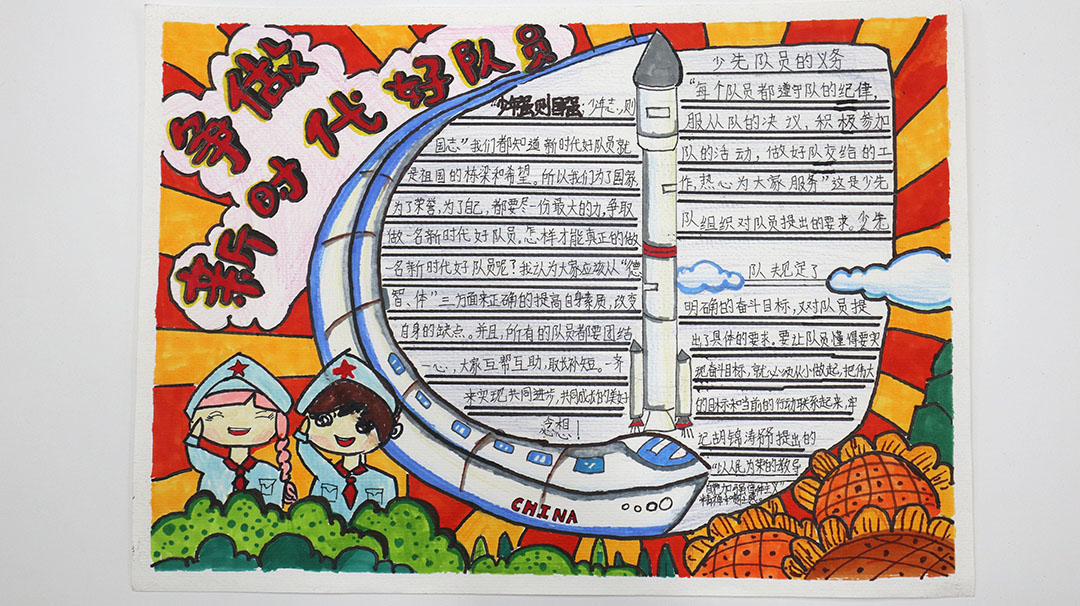 争做
新时代好队员
"少年强则国强;少年志,则
国志"我们都知道新时代好队员就
是祖国的栋梁和希望。所以我们为了国家,
为了荣誉,为了自己,都要尽一份最大的力,争取
做一名新时代好队员。怎样才能真正的做
一名新时代好队员呢?我认为大家应该从"德
智、体"三方面来正确的提高自身素质,改变
自身的缺点。并且,所有的队员都要团结
一心,大家互帮互助,取长补短。一齐
来实现共同进步,共同成长的美好
念想!
CHINA
少先队员的义务
"每个队员都遵守队的纪律,
服从队的决议,积极参加
队的活动,做好队交给的工
作,热心为大家服务"这是少先
队组织对队员提出的要求。少先
队规定了
明确的奋斗目标,对队员提
出了具体的要求。要让队员懂得要实
现奋斗目标,就必须从小做起,把伟大
的目标和当前的行动联系起来,牢
记胡锦涛爷爷提出的
"以人民为荣的教导